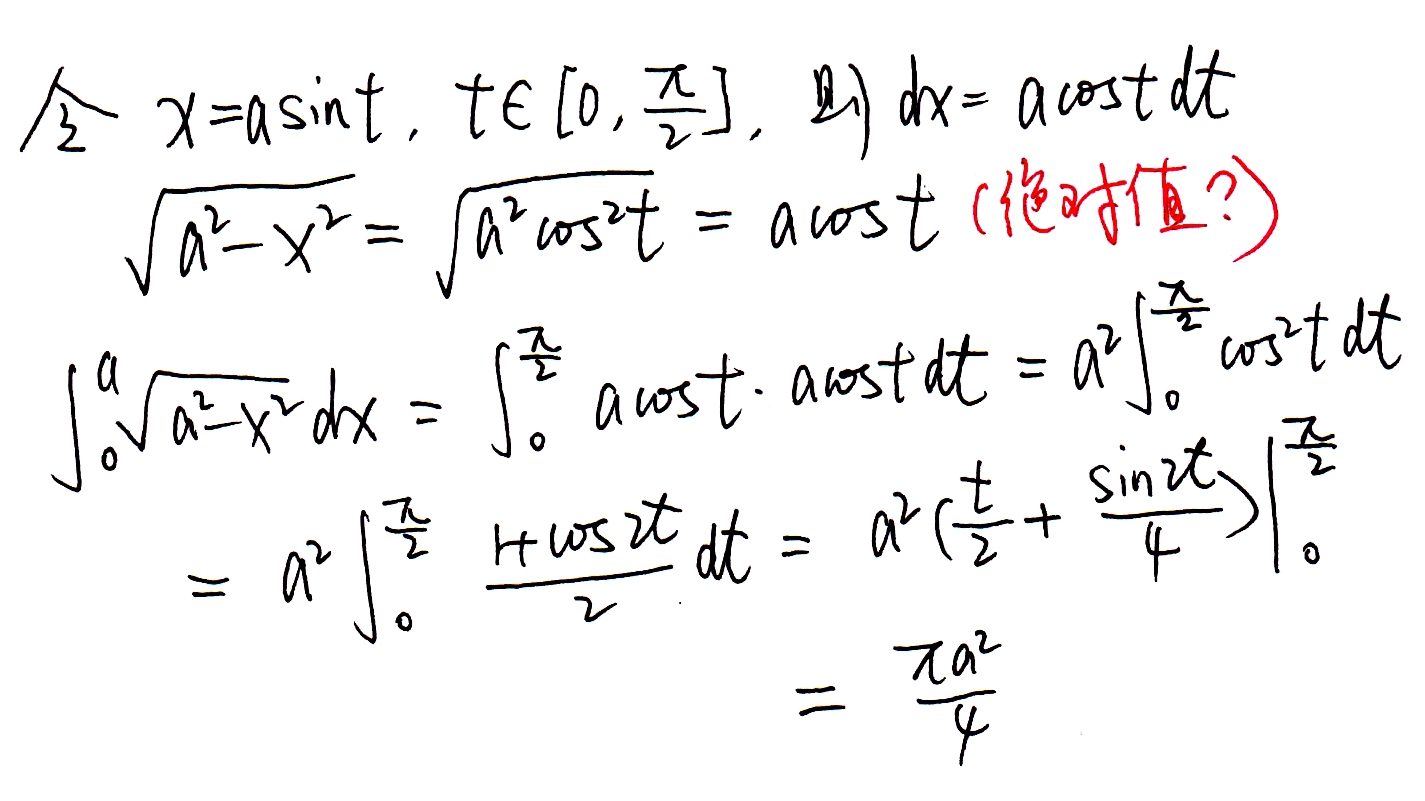 令 x=asint, t∈[0, π/2], 则 dx= acost dt
√(a²-x²) = √(a²cos²t) = acost (绝对值?)
∫₀^a √(a²-x²) dx = ∫₀^(π/2) acost · acost dt = a² ∫₀^(π/2) cos²t dt
= a² ∫₀^(π/2) (1+cos2t)/2 dt = a² (t/2 + sin2t/4) |₀^(π/2)
= πa²/4